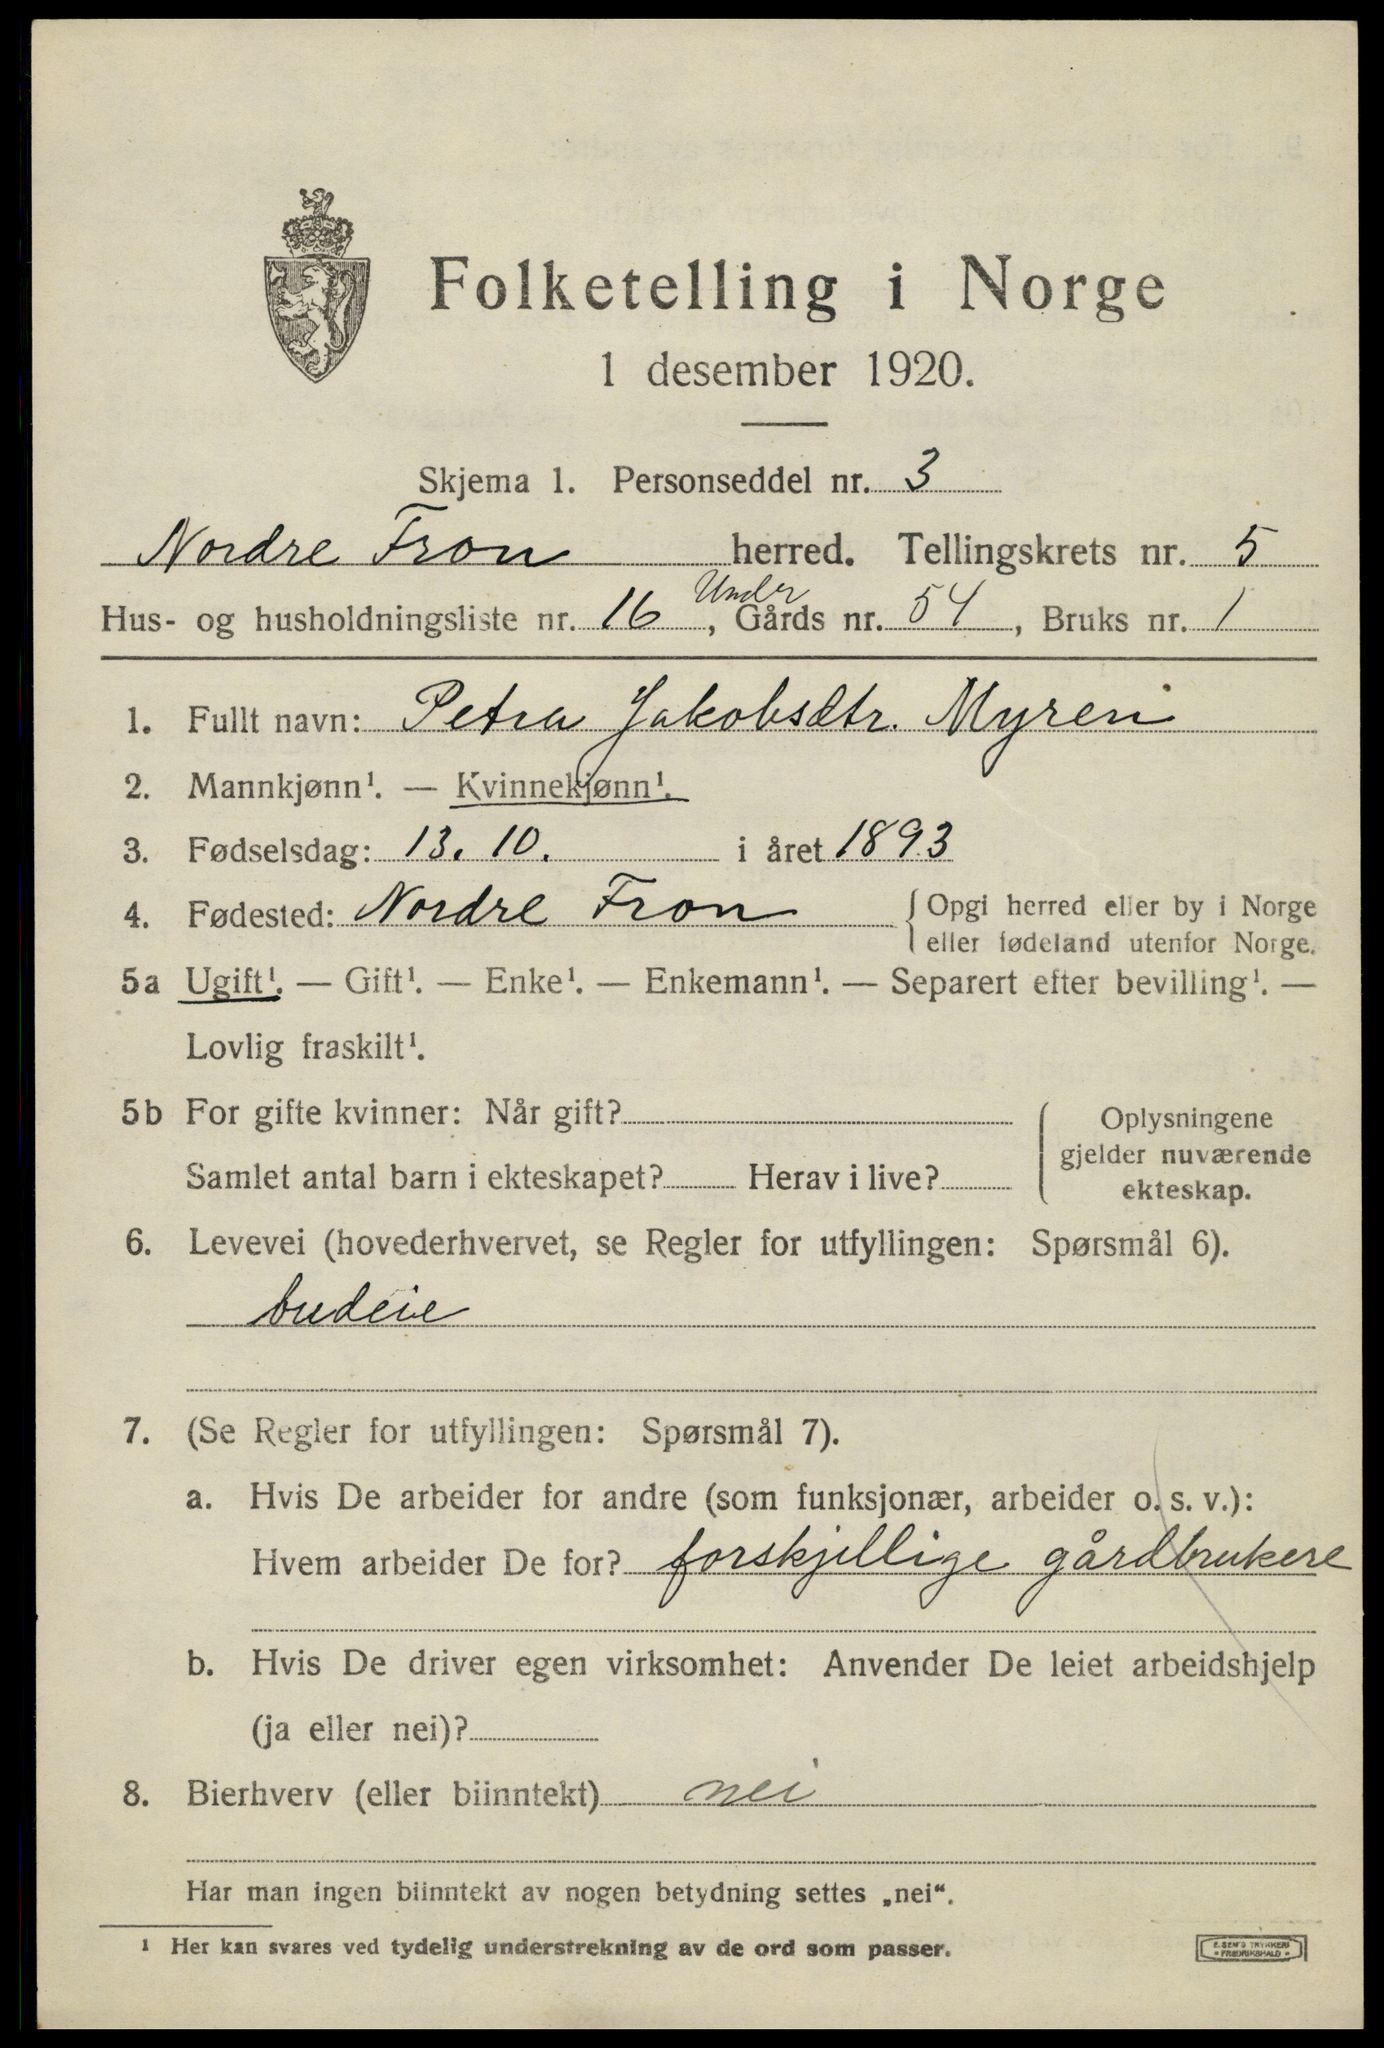 Folketelling i Norge
1 desember 1920.
Skjema 1. Personseddel nr. 3
Nordre Fron herred. Tellingskrets nr. 5
Hus- og husholdningsliste nr. 16, Under Gårds nr. 54, Bruks nr. 1
1. Fullt navn: Petra Jakobsdtr. Myren
2. Mannkjønn¹. — Kvinnekjønn¹.
3. Fødselsdag: 13. 10. i året 1893
4. Fødested: Nordre Fron { Opgi herred eller by i Norge
eller fødeland utenfor Norge.
5a Ugift¹. — Gift¹. — Enke¹. — Enkemann¹. — Separert efter bevilling¹. —
Lovlig fraskilt¹.
5b For gifte kvinner: Når gift?
Samlet antal barn i ekteskapet? Herav i live?
Oplysningene
gjelder nuværende
ekteskap.
6. Levevei (hovederhvervet, se Regler for utfyllingen: Spørsmål 6).
budeie
7. (Se Regler for utfyllingen: Spørsmål 7).
a. Hvis De arbeider for andre (som funksjonær, arbeider o. s. v.):
Hvem arbeider De for? forskjellige gårdbrukere
b. Hvis De driver egen virksomhet: Anvender De leiet arbeidshjelp
(ja eller nei)?
8. Bierhverv (eller biinntekt) nei
Har man ingen biinntekt av nogen betydning settes „nei“.
¹ Her kan svares ved tydelig understrekning av de ord som passer.
E. SEM'S TRYKKERI
FREDRIKSHALD